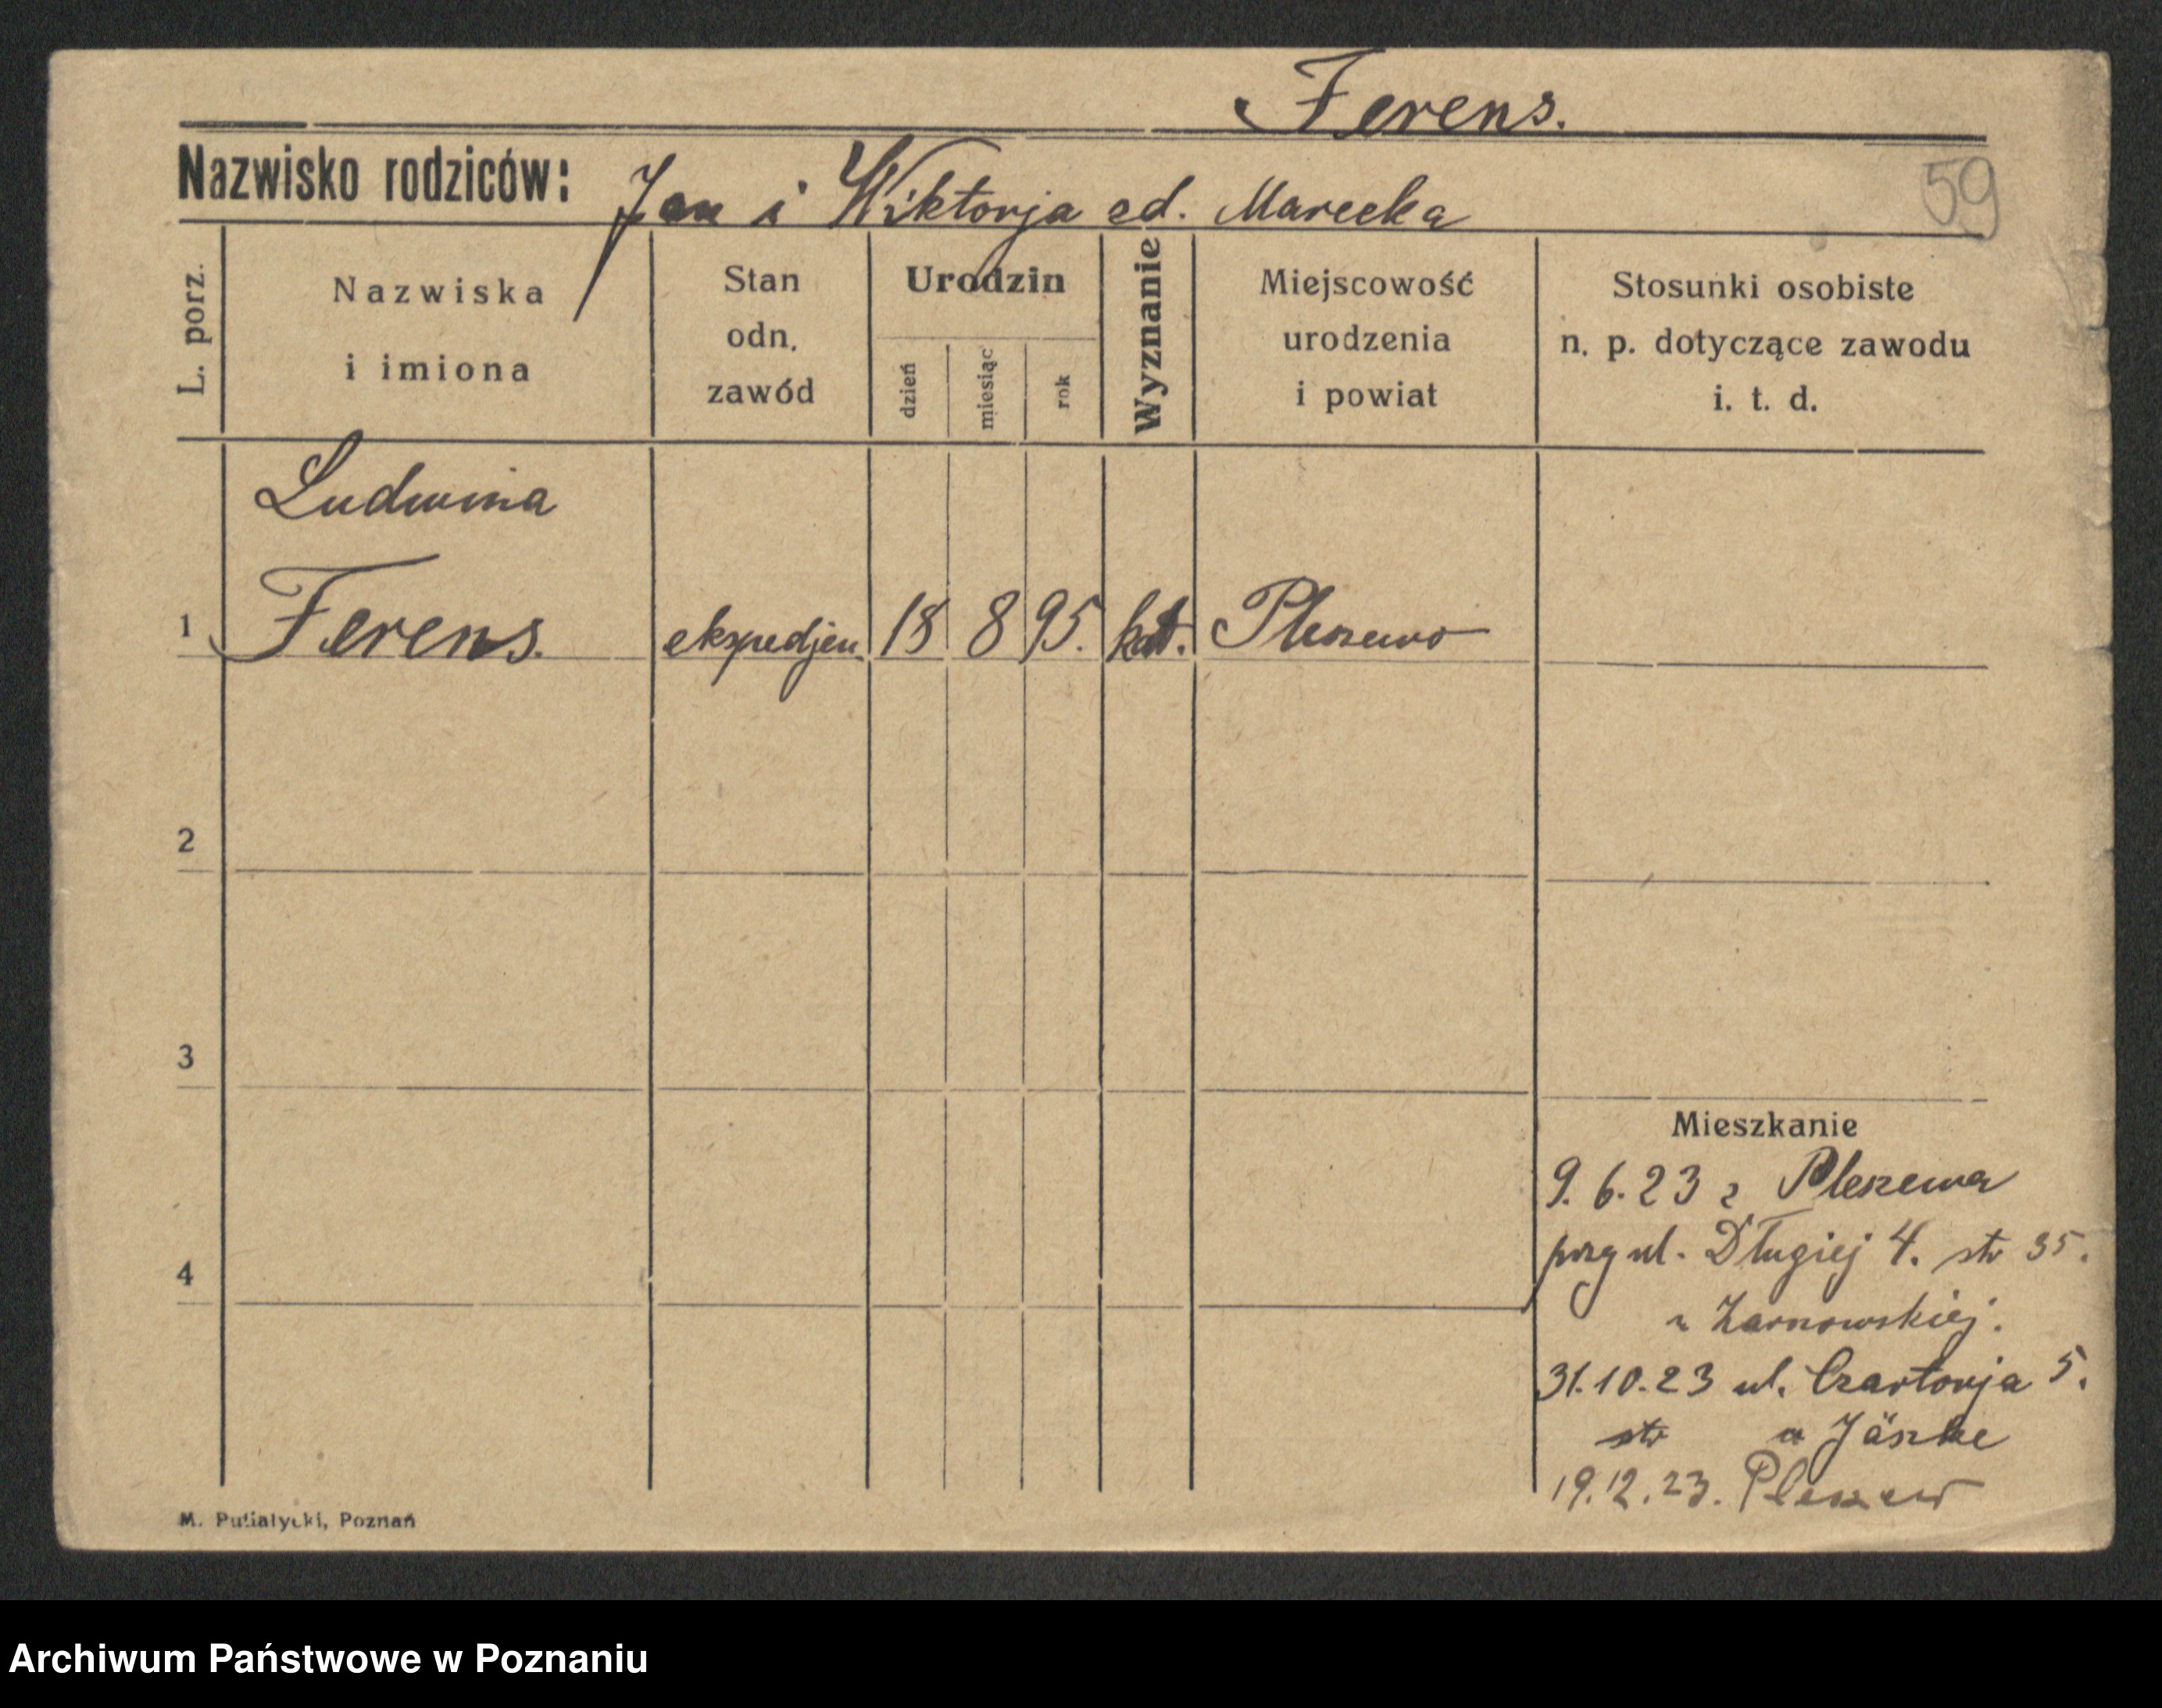 Ferens.
Nazwisko rodziców: Jan i Wiktorja zd. Marecka
59
L. porz.
Nazwiska
i imiona
Stan
odn.
zawód
Urodzin
dzień
miesiąc
rok
Wyznanie
Miejscowość
urodzenia
i powiat
Stosunki osobiste
n. p. dotyczące zawodu
i. t. d.
Ludwina
1 Ferens. ekspedjen. 18 8 95. kat. Pleszewo
2
3
4
Mieszkanie
9.6.23 z Pleszewa
przy ul. Długiej 4. str 35.
u Żarnowskiej.
31.10.23 ul. Czartorja 5.
str u Jäszke
19.12.23. Pleszew
M. Putiatycki, Poznań
Archiwum Państwowe w Poznaniu